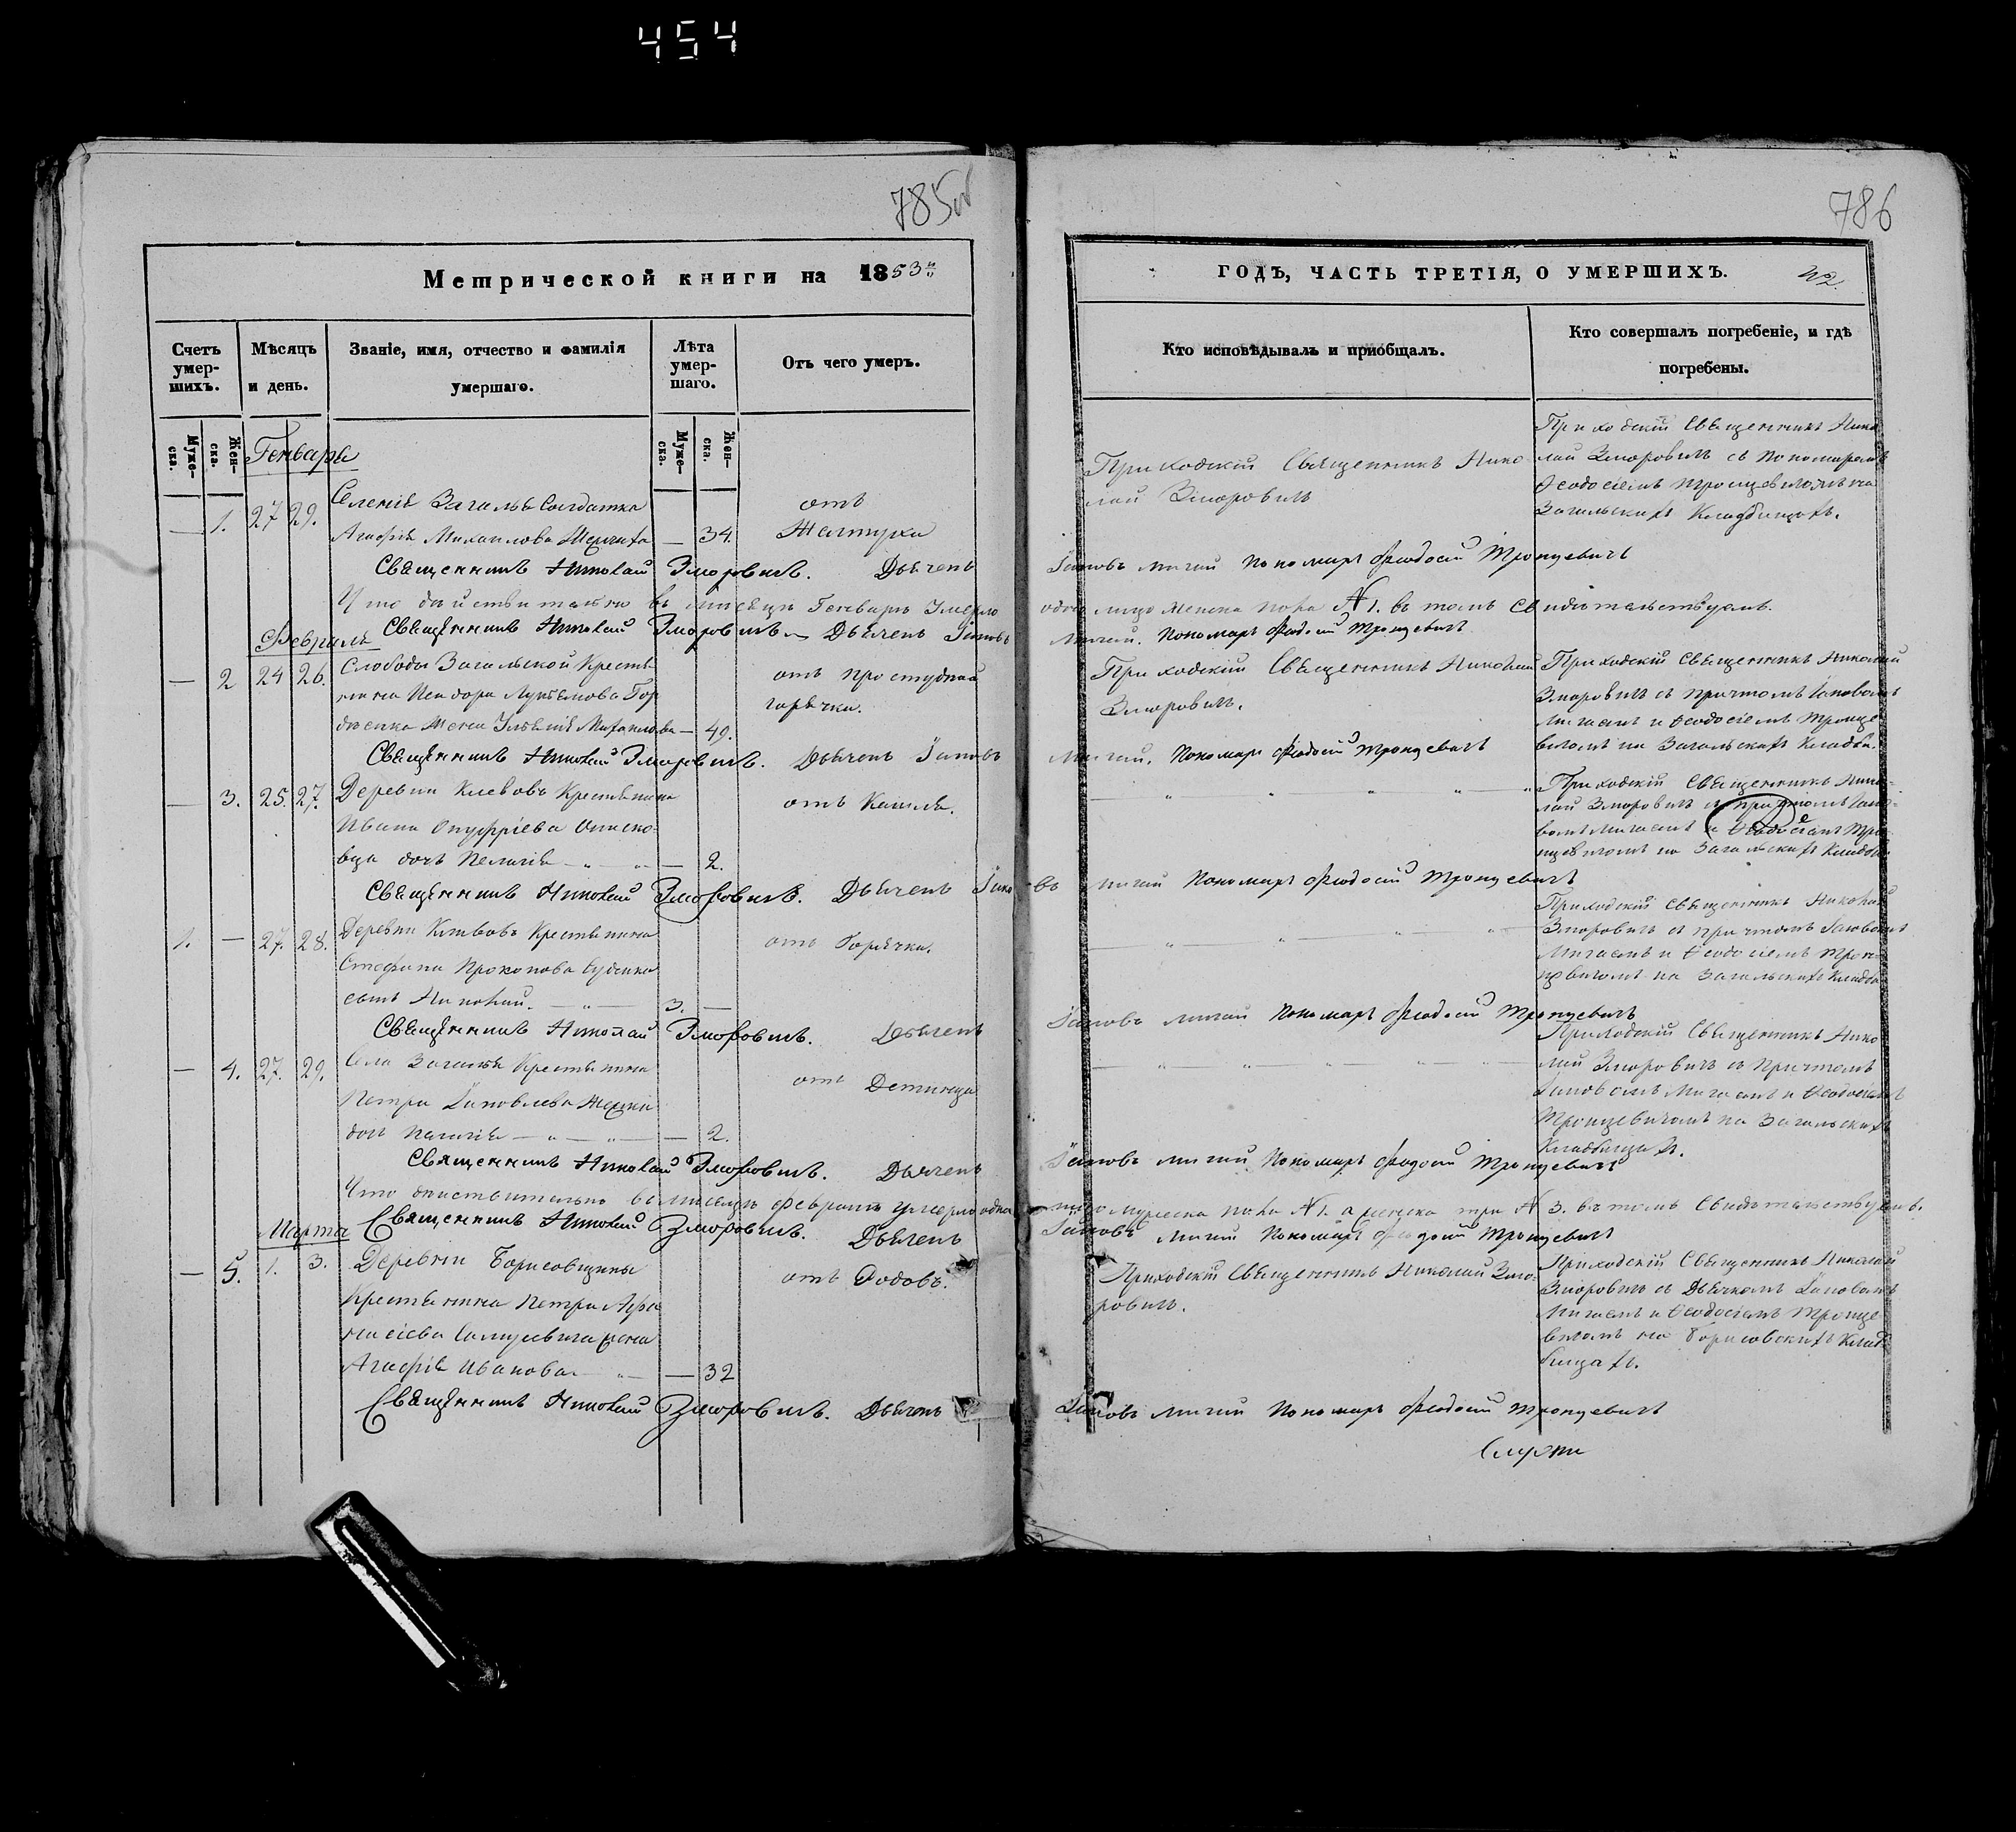 454
785об
Метрической книги на 1853й
Счетъ умер-шихъ.
Мѣсяцъ и день.
Званіе, имя, отчество и фамилія умершаго.
Лѣта умер-шаго.
Отъ чего умеръ.
Муже-ска. Жен-ска.
Муже-ска. Жен-ска.
Генварь
— 1. 27 29. Селенія Загалья Солдатка отъ
Агафія Михаилова — 34. Желтухи
Священникъ Николай Зморовичъ. Дьячекъ
Что дѣйствительно въ мѣсяцѣ Генварѣ Умерло
Февраль Священникъ Николай Зморовичъ Дьячекъ Іаковъ
— 2 24 26. Слободы Загальской Кресть- отъ простудной
горячки.
жена Михаилова — 49.
Священникъ Николай Зморовичъ. Дьячекъ Іаковъ
— 3. 25. 27. Деревни Клевовъ Крестьянина отъ Кашля.
Ивана Онуфріева
дочь Пелагія — 2.
Священникъ Николай Зморовичъ. Дьячекъ Іако
1. — 27. 28. Деревни Клевовъ Крестьянина отъ Горячки.
Стефана Прокопова
сынъ Николай. — 3. —
Священникъ Николай Зморовичъ. Дьячекъ
— 4. 27. 29. Села Загалья Крестьянина отъ
Петра Іаковлева
дочь Пелагія — 2.
Священникъ Николай Зморовичъ. Дьячекъ
Что дѣйствительно въ мѣсяцѣ Февралѣ умерло одно
Марта Священникъ Николай Зморовичъ. Дьячекъ
— 5. 1. 3. Деревни Борисовщины отъ Родовъ.
Крестьянина Петра Афа
насіева жена
Агафія Иванова — 32
Священникъ Николай Зморовичъ. Дьячекъ
786
ГОДЪ, ЧАСТЬ ТРЕТІЯ, О УМЕРШИХЪ. 42.
Кто исповѣдывалъ и пріобщалъ.
Кто совершалъ погребеніе, и гдѣ погребены.
Приходскій Священникъ Нико
лай Зморовичъ
Приходскій Священникъ Нико
лай Зморовичъ съ Пономаремъ
Ѳеодосіемъ Тронцевичемъ на
Загальскихъ Кладбищахъ.
Іаковъ Мигай Пономарь Феодосій Тронцевичъ
одно лицо Женска пола №1. въ томъ свидѣтельствуемъ.
Мигай. Пономарь Феодосій Тронцевичъ
Приходскій Священникъ Николай
Зморовичъ.
Приходскій Священникъ Николай
Зморовичъ съ причтомъ Іаковомъ
Мигаемъ и Ѳеодосіемъ Тронце
вичемъ на Загальскихъ Кладби.
Мигай. Пономарь Феодосій Тронцевичъ
Приходскій Священникъ Нико-
лай Зморовичъ съ причтомъ Іако-
вомъ Мигаемъ и Ѳеодосіемъ Трон
цевичемъ на Загальскихъ Кладби
въ Мигай Пономарь Феодосій Тронцевичъ
Приходскій Священникъ Николай
Зморовичъ съ причтомъ Іаковомъ
Мигаемъ и Ѳеодосіемъ Трон-
цевичемъ на Загальскихъ Кладби
Іаковъ Мигай Пономарь Феодосій Тронцевичъ
Приходскій Священникъ Нико
лай Зморовичъ съ Причтомъ
Іаковомъ Мигаемъ и Ѳеодосіемъ
Тронцевичемъ на Загальскихъ
Кладбищахъ.
Іаковъ Мигай Пономарь Феодосій Тронцевичъ
лицо Мужеска пола №1. а женска три № 3. въ томъ Свидѣтельствуемъ.
Іаковъ Мигай Пономарь Феодосій Тронцевичъ
Приходскій Священникъ Николай Змо-
ровичъ.
Приходскій Священникъ Николай
Зморовичъ съ Дьячкомъ Іаковомъ
Мигаемъ и Ѳеодосіемъ Тронце
вичемъ на Борисовскихъ Клад
бищахъ.
Іаковъ Мигай Пономарь Феодосій Тронцевичъ